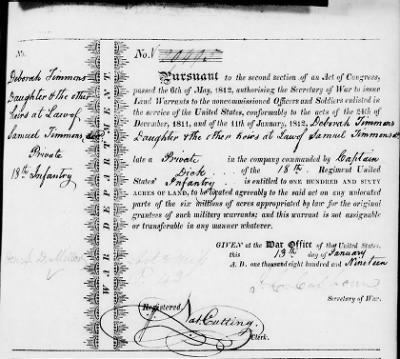 No.
Deborah Timmons
Daughter & the other
heirs at Law of
Samuel Timmons, decd
Private
18th Infantry
WAR DEPARTMENT.
No.
Pursuant to the second section of an Act of Congress,
passed the 6th of May, 1812, authorising the Secretary of War to issue
Land Warrants to the noncommissioned Officers and Soldiers enlisted in
the service of the United States, conformably to the acts of the 24th of
December, 1811, and of the 11th of January, 1812, Deborah Timmons
Daughter & the other heirs at Law of Samuel Timmons
late a Private in the company commanded by Captain
Dick of the 18th Regiment United
States' Infantry is ENTITLED to ONE HUNDRED AND SIXTY
ACRES OF LAND, to be located agreeably to the said act on any unlocated
part of the six millions of acres appropriated by law for the original
grantees of such military warrants; and this warrant is not assignable
or transferable in any manner whatever.
GIVEN at the War Office of the United States,
this 13th day of January
A. D. one thousand eight hundred and Nineteen
Secretary of War.
Registered
Nat. Cutting,
Clerk.